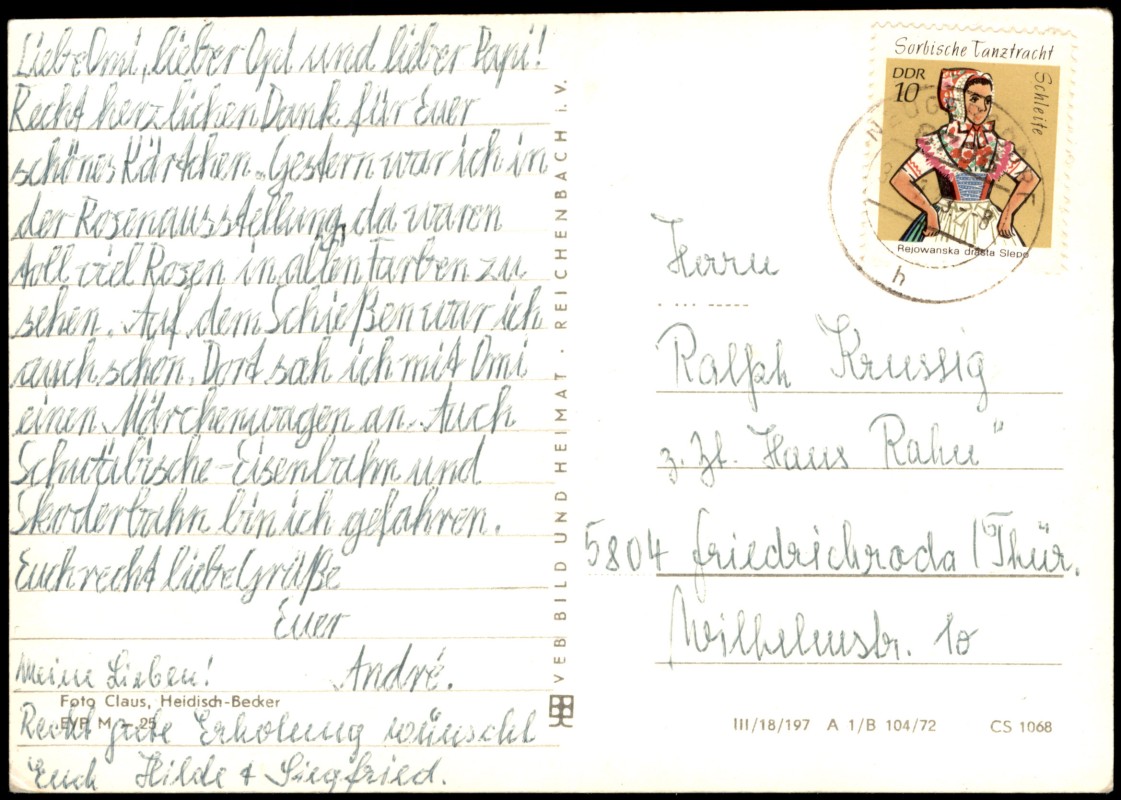 Liebe Omi, lieber Opi und lieber Papi!
Recht herzlichen Dank für Euer
schönes Kärtchen. Gestern war ich in
der Rosenausstellung, da waren
toll viel Rosen in allen Farben zu
sehen. Auf dem Schießen war ich
auch schon. Dort sah ich mit Omi
einen Märchenwagen an. Auch
Schwäbische-Eisenbahn und
Skoderbahn bin ich gefahren.
Euch recht liebe Grüße
Euer
André.
Meine Lieben!
Recht gute Erholung wünscht
Euch Hilde + Siegfried.
Foto Claus, Heidisch-Becker
EVP M -.25
VEB BILD UND HEIMAT · REICHENBACH I. V.
Sorbische Tanztracht
Schleife
DDR
10
Rejowanska drasta Slepo
h
Herrn
Ralph Krussig
z. Zt. Haus Rahn"
5804 Friedrichroda/Thür.
Wilhelmstr. 10
III/18/197 A 1/B 104/72 CS 1068